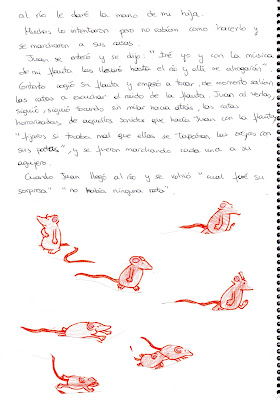 al río le daré la mano de mi hija.
Muchos lo intentaron pero no sabían como hacerlo y
se marcharon a sus casas.
Juan se enteró y se dijo: "Iré yo y con la música
de mi flauta las llevaré hasta el río y allí se ahogarán"
Contento cogió su flauta y empezó a tocar, de momento salían
las ratas a escuchar el ruido de la flauta. Juan al verlas,
siguió y siguió tocando sin mirar hacia atrás, las ratas
horrorizadas, de aquellos sonidos que hacía Juan con la flauta,
"fijaros si tocaba mal que ellas se tapaban las orejas con
sus patitas", y se fueron marchando cada una a su
agujero.
Cuando Juan llegó al río y se volvió "cual fué su
sorpresa" "no había ninguna rata".